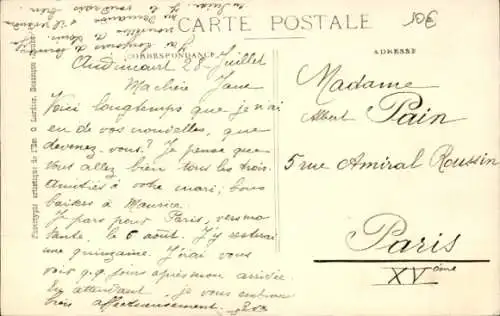 CARTE POSTALE
10€
CORRESPONDANCE
ADRESSE
Audincourt 28 Juillet
Ma chère Jane
Voici longtemps que je n'ai
eu de vos nouvelles, que
devenez-vous? Je pense que
vous allez bien tous les trois.
Amitiés à votre mari, bons
baisers à Maurice.
Je pars pour Paris, vers ma
tante, le 6 août. J'y resterai
une quinzaine. J'irai vous
voir q.q. jours après mon arrivée.
En attendant, je vous embrasse
bien affectueusement.
Madame
Albert Pain
5 rue Amiral Roussin
Paris
XVème
Phototypie artistique de l'Est